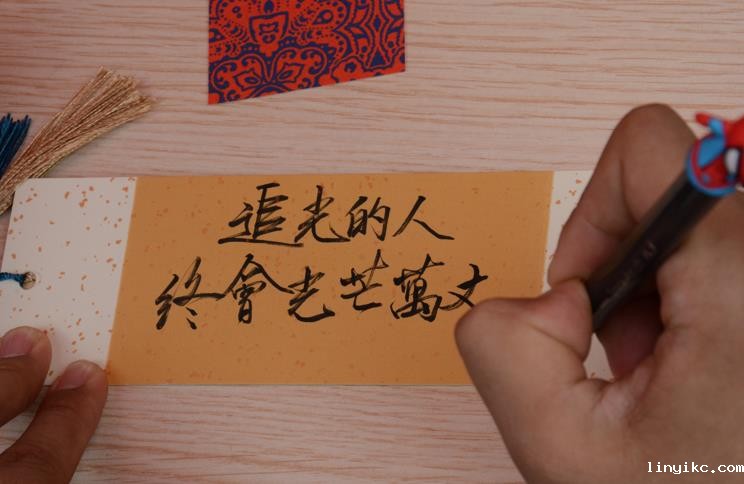 追光的人
终會光芒萬丈
linyikc.com